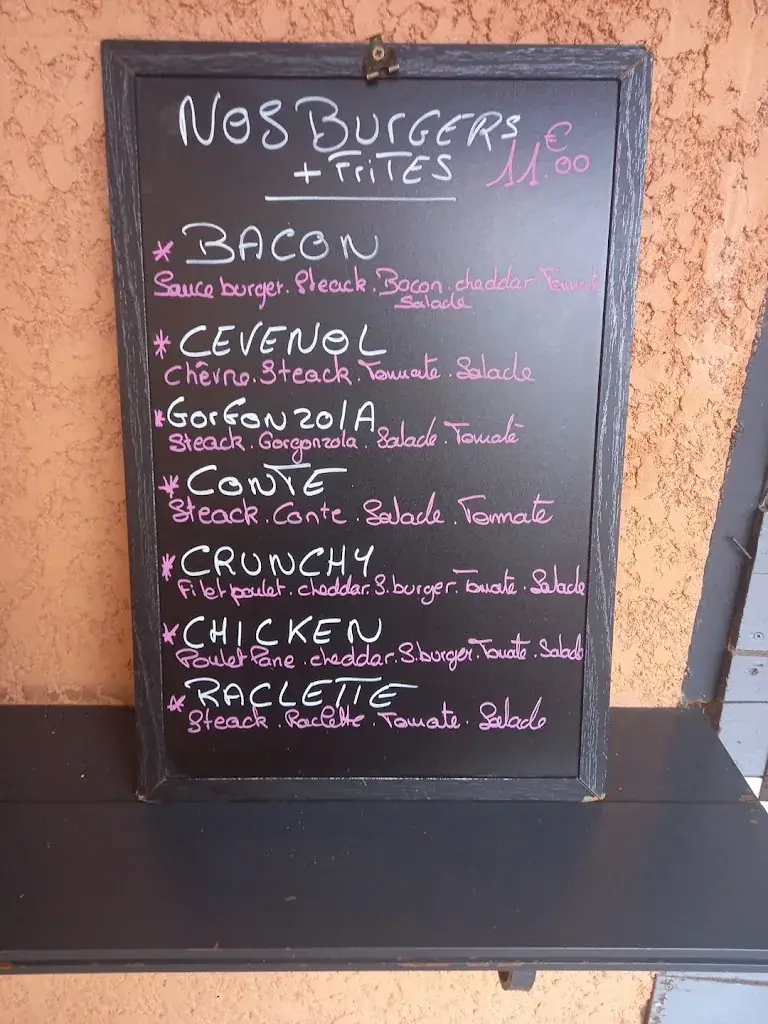 NOS BURGERS
+ FRITES 11.00 €
* BACON
Sauce burger. Steack. Bacon. cheddar Tomate
Salade
* CEVENOL
Chèvre. Steack. Tomate. Salade
* GORGONZOLA
Steack. Gorgonzola. Salade. Tomate
* CONTE
Steack. Conte. Salade. Tomate
* CRUNCHY
Filet poulet. cheddar. S. burger. Tomate. Salade
* CHICKEN
Poulet Pane. cheddar. S. burger. Tomate. Salade
* RACLETTE
Steack. Raclette. Tomate. Salade